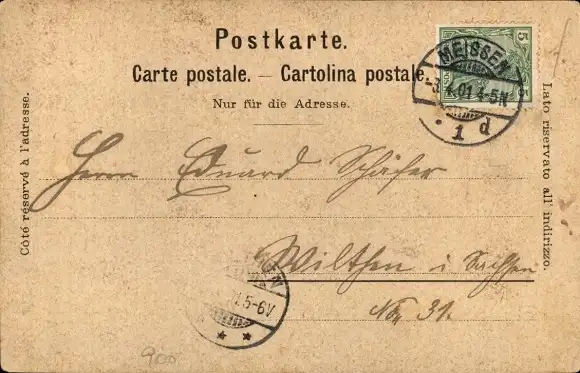 Postkarte.
Carte postale. — Cartolina postale.
Nur für die Adresse.
Côté réservé à l'adresse.
Lato riservato all' indirizzo.
5
MEISSEN
4.01.4-5N
* 1 d
Herrn Eduard Schäfer
Wilthen i. Sachsen
No. 31.
EN
5-6V
* *
900